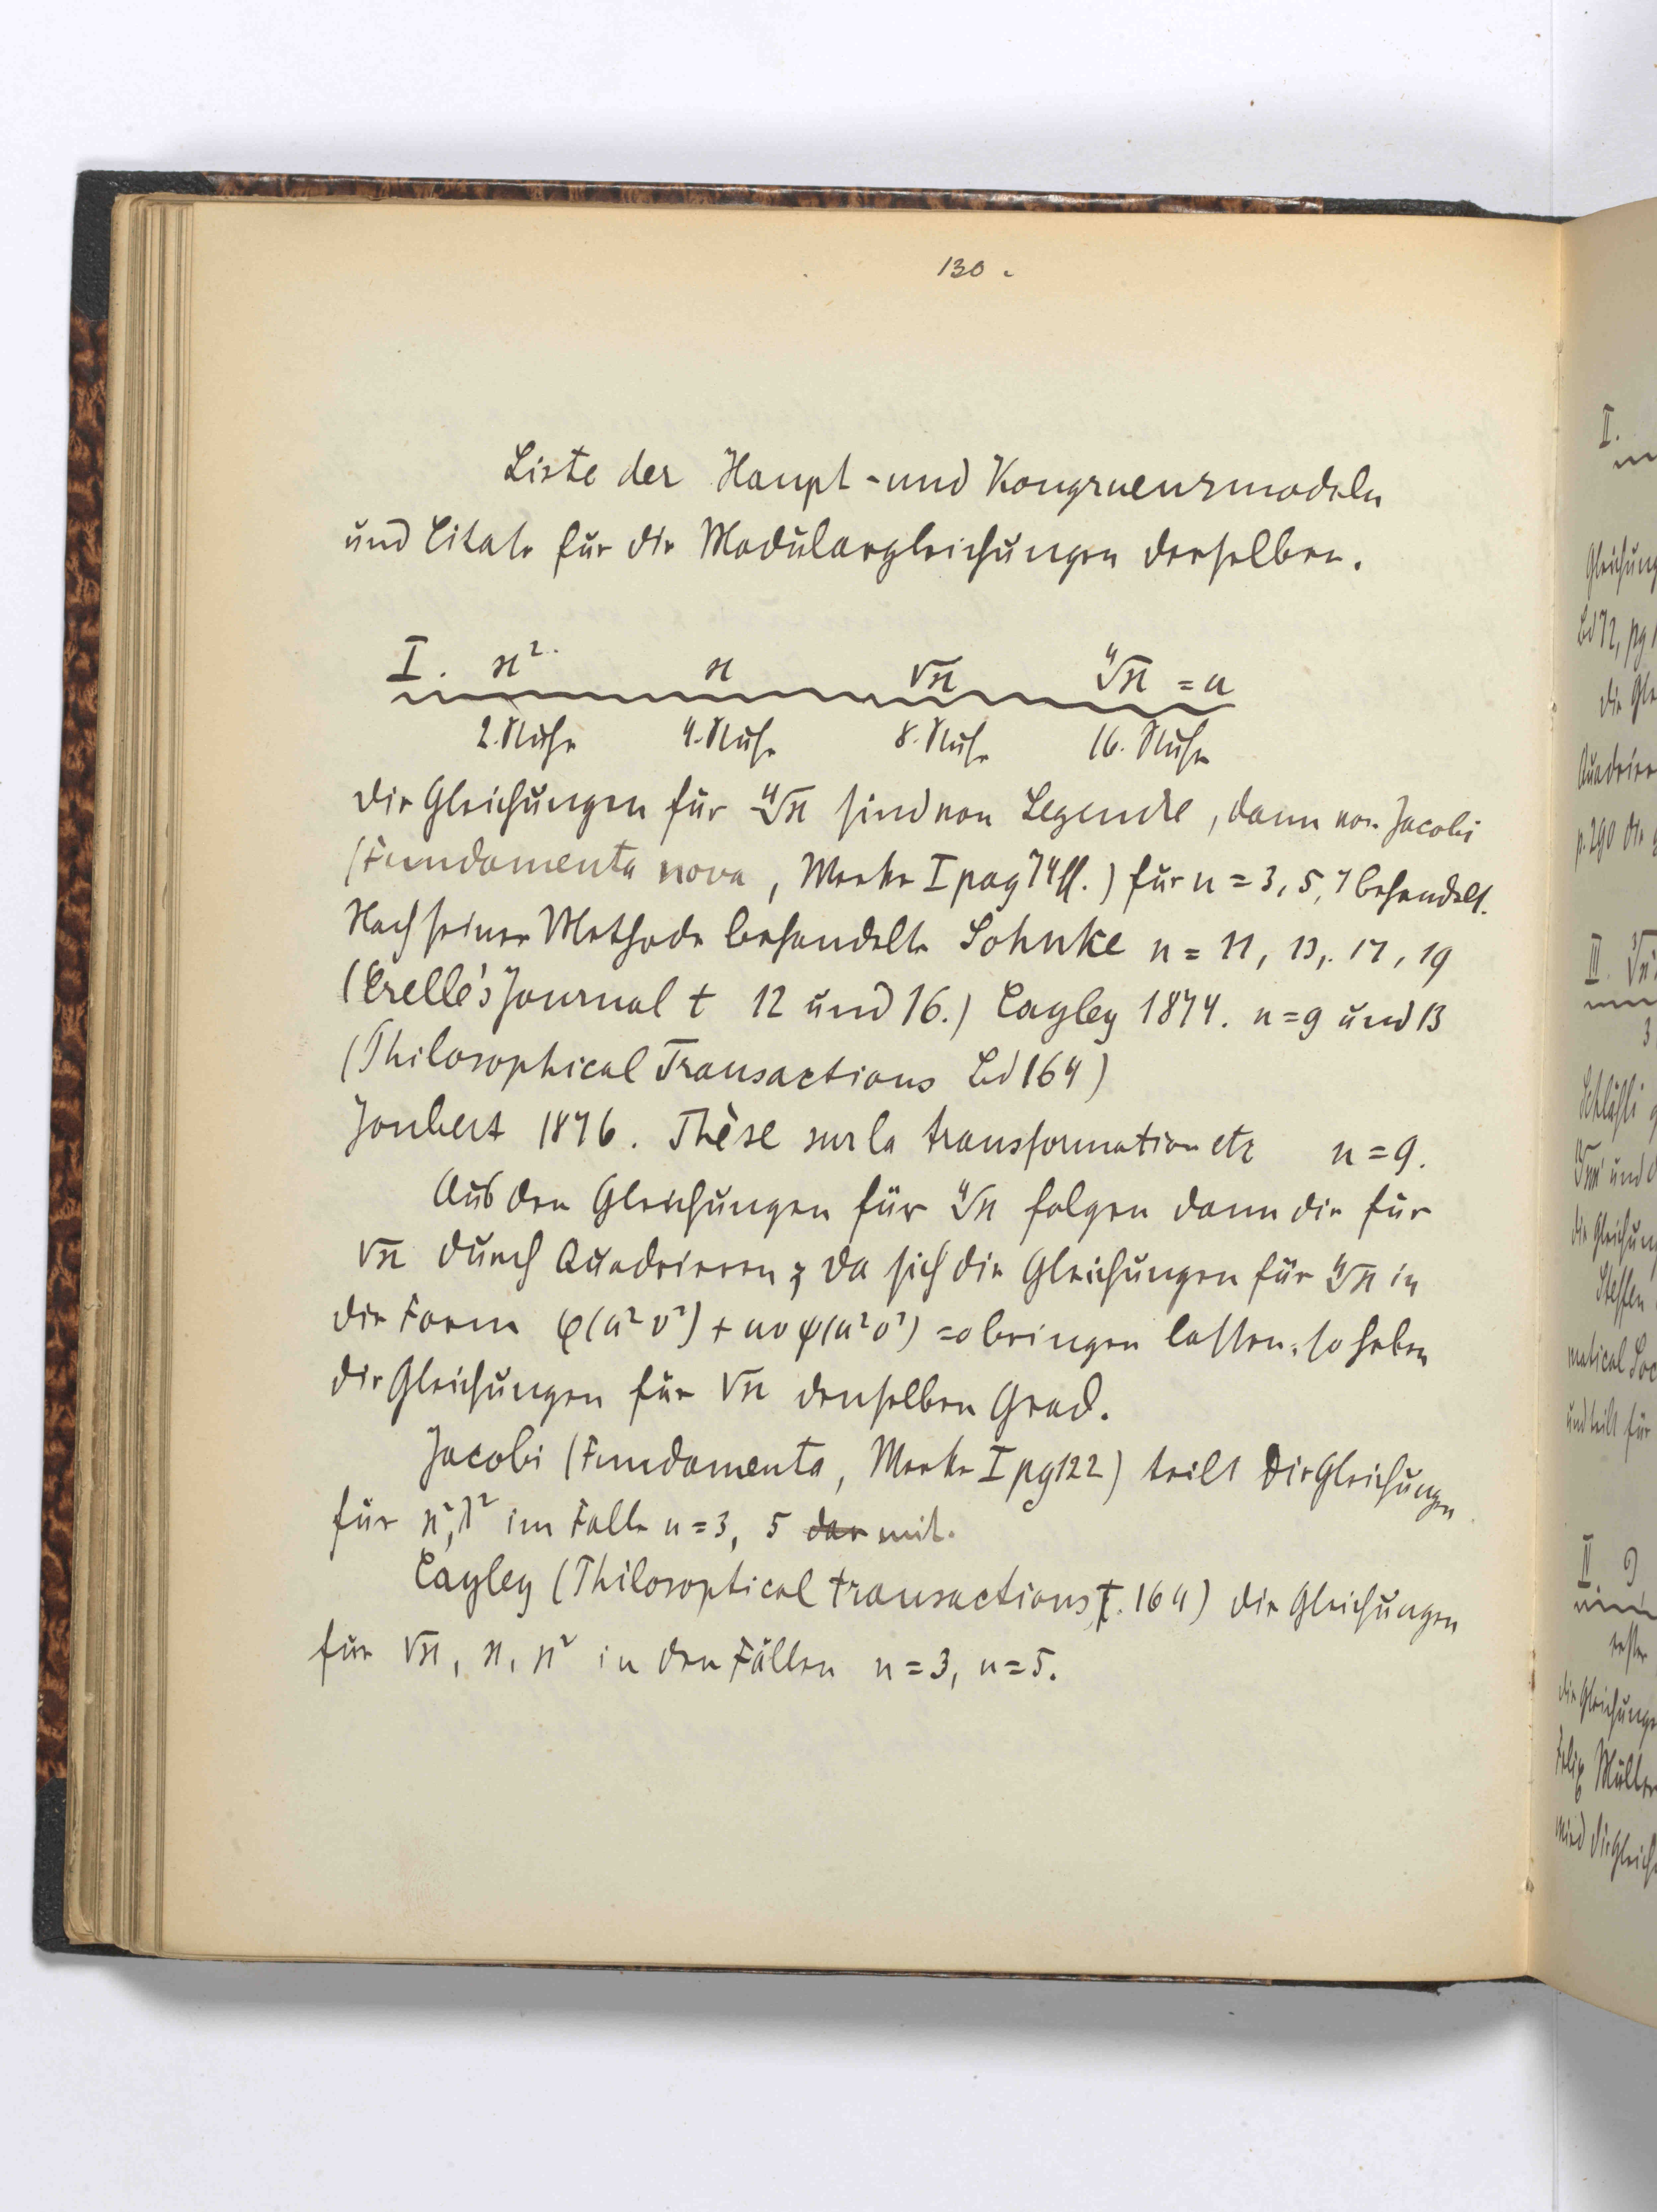 130.
Liste der Haupt- und Kongruenzmoduln
und Citate für die Modulargleichungen derselben.
I. ϰ² ϰ √ϰ ⁴√ϰ = u
2. Stufe 4. Stufe 8. Stufe 16. Stufe
Die Gleichungen für ⁴√ϰ sind von Legendre, dann von Jacobi
(Fundamenta nova, Werke I pag 74 ff.) für n = 3, 5, 7 behandelt.
Nach seiner Methode behandelte Sohnke n = 11, 13, 17, 19
(Crelle's Journal t 12 und 16.) Cayley 1874. n = 9 und 13
(Philosophical Transactions Bd 164)
Joubert 1876. Thèse sur la transformation etc n = 9.
Aus den Gleichungen für ⁴√ϰ folgen dann die für
√ϰ durch Quadrieren; da sich die Gleichungen für ⁴√ϰ in
die Form φ(u² v²) + uv ψ(u² v²) = 0 bringen lassen, so haben
die Gleichungen für √ϰ denselben Grad.
Jacobi (Fundamenta, Werke I pg 122) teilt die Gleichungen
für ϰ², λ² im Falle n = 3, 5 mit.
Cayley (Philosoptical transactions, T. 164) die Gleichungen
für √ϰ, ϰ, ϰ² in den Fällen n = 3, n = 5.
I.
Gleichung
Bd 72, pg
die Gle
Quadrier
p. 290 die
III.
3
Schläfli
und
die Gleichun
matical Soc
und teilt für
die Gleichunge
Felix Müller
wird die Gleich